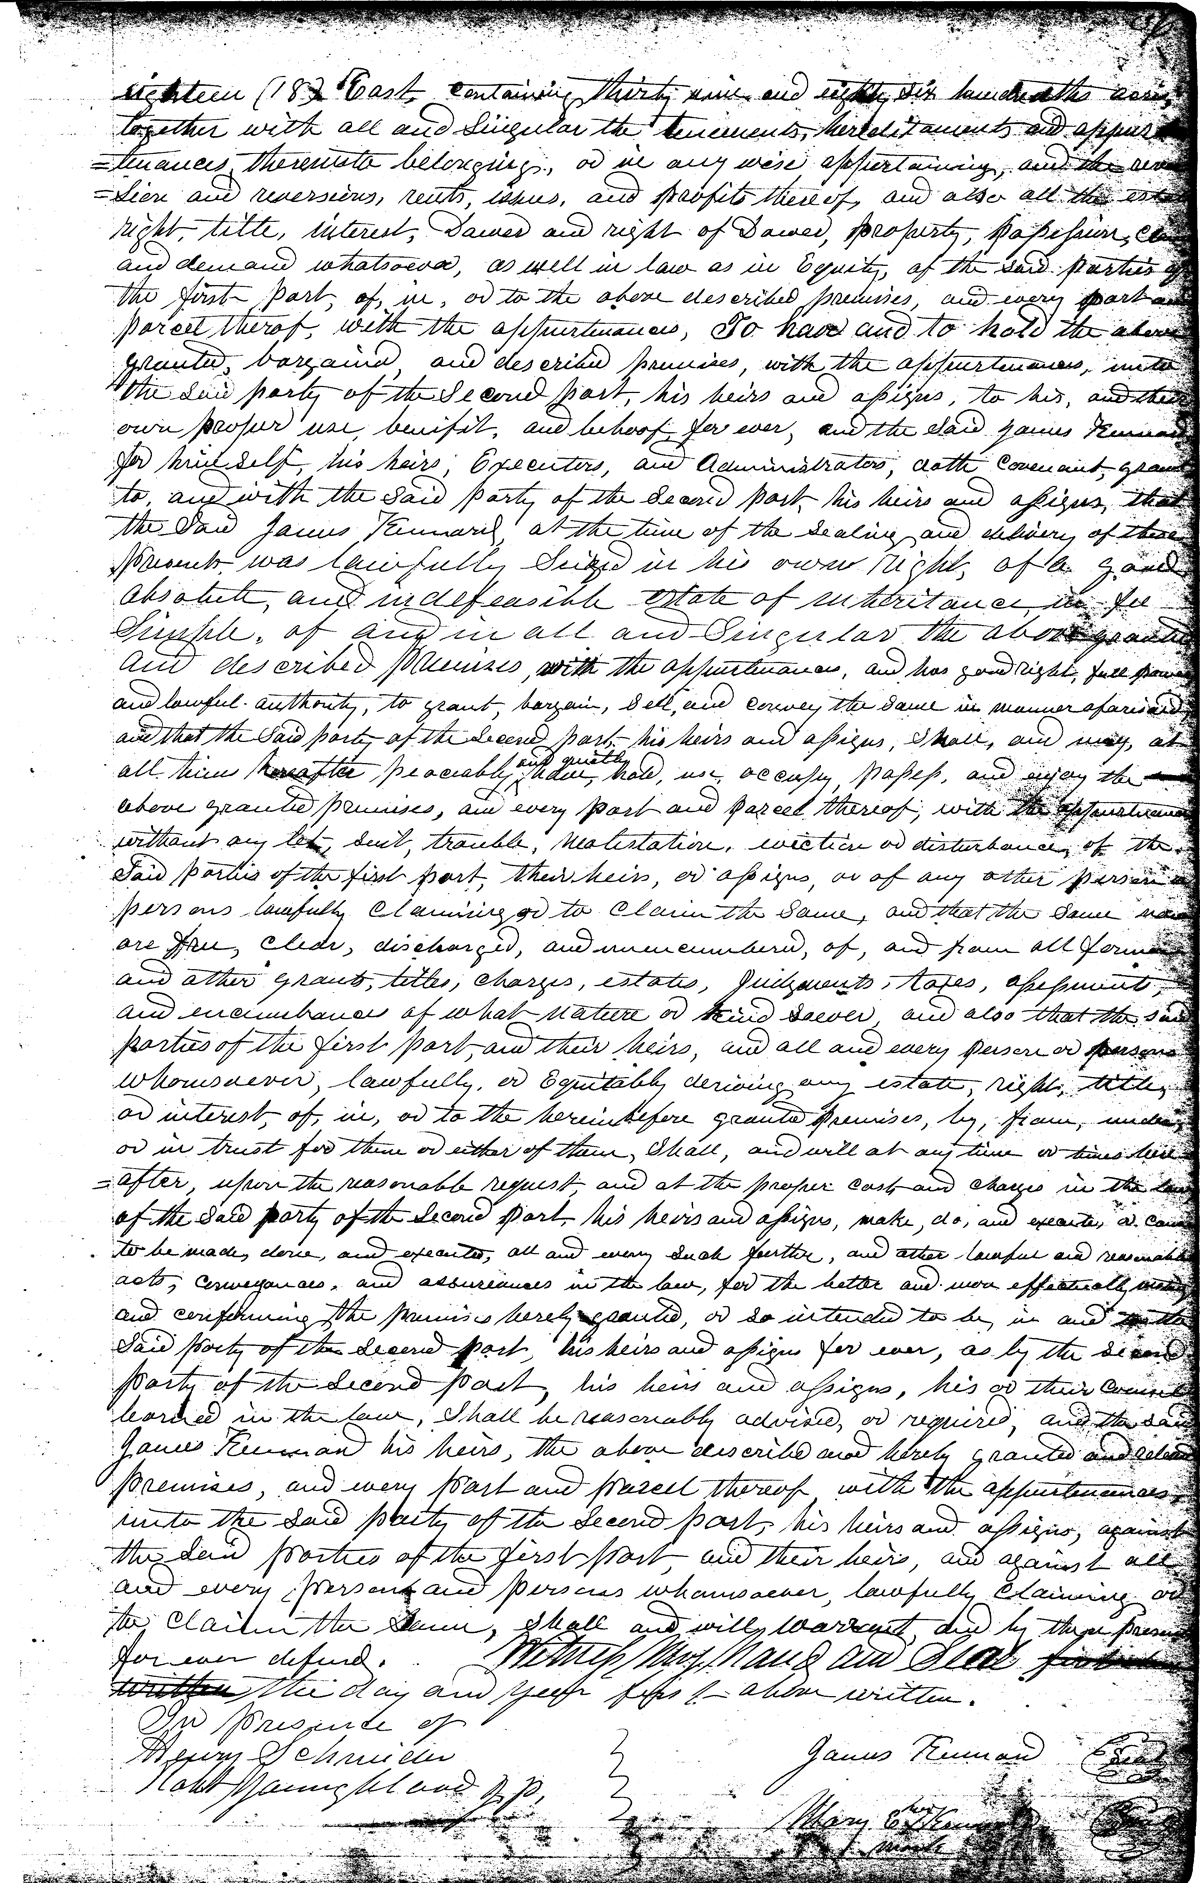 eighteen (18) East, containing thirty nine and eighty six hundredths acres,
together with all and Singular the tenements, hereditaments and appur
=tenances, thereunto belonging, or in any wise appertaining, and the rever
=sion and reversions, rents, issues, and profits thereof, and also all the estate
right, title, interest, Dower and right of Dower, property, possession, claim
and demand whatsoever, as well in law as in Equity, of the said parties of
the first part, of, in, or to the above described premises, and every part and
parcel therof, with the appurtenances, To have and to hold the above
granted, bargaind, and described premises, with the appurtenances, unto
the said party of the second part, his heirs and assigns, to his, and their
own proper use, benifit, and behoof, for ever, and the said James Kennard
for himself, his heirs, Executors, and Administrators, doth covenant, grant
to, and with the said party of the second part, his heirs and assigns, that
the said James Kennard, at the time of the sealing and delivery of these
presents was lawfully Seized in his own right, of a good
absolute, and indefeasible estate of inheritance, in fee
Simple, of and in all and Singular the above granted
and described premises, with the appurtenances, and has good right, full power
and lawful authority, to grant, bargain, Sell, and convey the same in manner aforesaid,
and that the said party of the second part, his heirs and assigns, Shall, and may, at
all times hereafter peaceably and quietly have, hold, use, occupy, possess, and enjoy the
above granted premises, and every part and parcel thereof, with the appurtenances
without any let, suit, trouble, molestation, eviction or disturbance, of the
said parties of the first part, their heirs, or assigns, or of any other person or
persons lawfully claiming or to claim the same, and that the same now
are free, clear, discharged, and unencumbered, of, and from all former
and other grants, titles, charges, estates, Judgments, taxes, assessments,
and encumbrances of what nature or kind soever, and also that the said
parties of the first part, and their heirs, and all and every person or persons
whomsoever, lawfully, or Equitably deriving any estate, right, title,
or interest, of, in, or to the herein before granted premises, by, from, under,
or in trust for them or either of them, Shall, and will at any time or times here
=after, upon the reasonable request, and at the proper costs and charges in the law
of the said party of the second part, his heirs and assigns, make, do, and execute, or cause
to be made, done, and executed, all and every such further, and other lawful and reasonable
acts, conveyances, and assureances in the law, for the better and more effectually vesting
and confirming the premises hereby granted, or so intended to be, in and to the
said party of the second part, his heirs and assigns for ever, as by the second
party of the second part, his heirs and assigns, his or their counsel
learned in the law, Shall be reasonably advised, or required, and the said
James Kennard his heirs, the above describe and hereby granted and released
premises, and every part and parcel thereof, with the appurtenances,
unto the said party of the second part, his heirs and assigns, against
the said parties of the first part, and their heirs, and against all
and every person and persons whomsoever, lawfully claiming or
to claim the same, shall and will warrant, and by these presents
for ever defend. Witness My Hand and Seal
written the day and year first above written.
In presence of
Henry Schnieder James Kennard Seal
J. P.
Mary E her Kennard Seal
mark